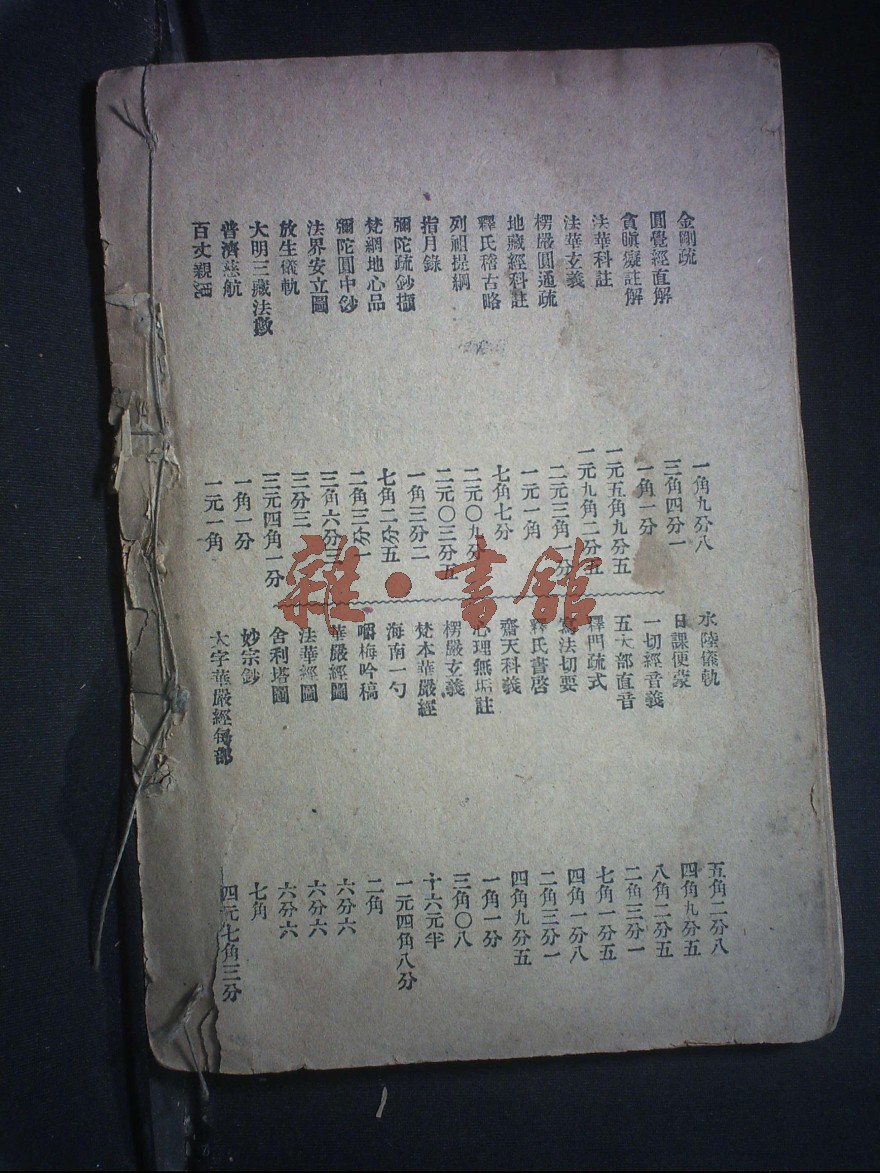 金剛疏　一角九分八
圓覺經直解　三角四分一
貪瞋癡註解　一角一分
法華科註　一元五角九分五
法華玄義　一元九角二分五
楞嚴圓通疏　二元三角一分
地藏經科註　一元一角
釋氏稽古略　七角七分
列祖提綱　二元〇九分
指月錄　二元〇三分五
彌陀疏鈔擷　一角三分二
梵網地心品　七角二分五
彌陀圓中鈔　二角三分一
法界安立圖　三角六分三
放生儀軌　三分三
大明三藏法數　三元四角一分
普濟慈航　一角一分
百丈觀　一元一角
水陸儀軌　五角二分八
日課便蒙　四角九分五
一切經音義　八角二分五
五大部直音　二角三分一
釋門疏式　七角一分五
寫法切要　四角一分八
釋氏書啓　二角三分一
齋天科義　四角九分五
心理無垢註　一角一分
楞嚴玄義　三角〇八
梵本華嚴經　十六元半
海南一勺　一元四角八分
嚼梅吟稿　二角
華嚴經圖　六分六
法華經圖　六分六
舍利塔圖　六分六
妙宗鈔　七角
大字華嚴經每部　四元七角三分
雜·書館